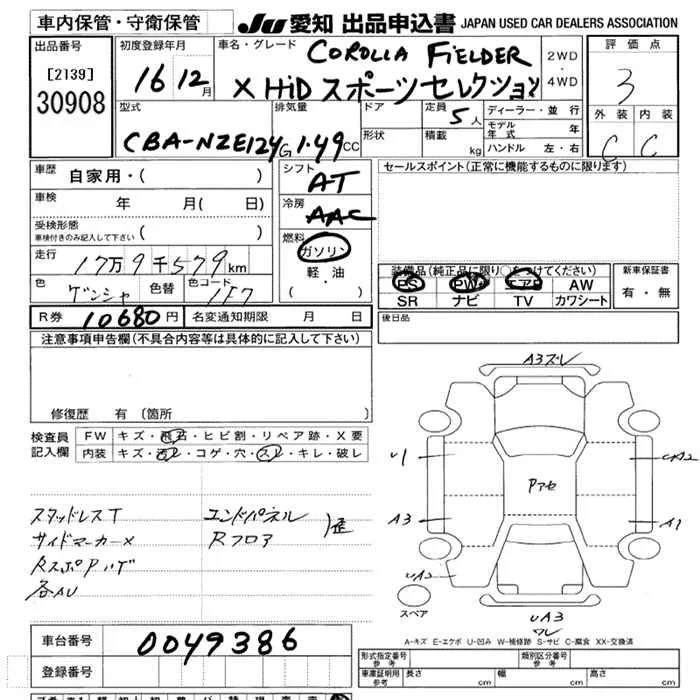 車内保管・守衛保管
JU 愛知 出品申込書 JAPAN USED CAR DEALERS ASSOCIATION
出品番号
[2139]
30908
初度登録年月
16 12月
車名・グレード
COROLLA FIELDER
X HiD スポーツセレクション
2WD
・
4WD
評価点
3
外装 内装
C C
型式
CBA-NZE124G
排気量
1.49CC
ドア
形状
定員 5人
積載 kg
ディーラー・並行
モデル年式 年
ハンドル 左・右
車歴 自家用・( )
車検 年 月( 日)
受検形態
車検付きのみ記入して下さい ( )
走行 17万9千579km
色 ゲンシャ 色替 色コード 1F7
シフト
AT
冷房
AAC
燃料
ガソリン
軽・油
( ・ )
セールスポイント(正常に機能するものに限ります)
装備品(純正品に限り○をつけてください)
PS PW エアB AW
SR ナビ TV カワシート
新車保証書
有・無
R券 10680円 名変通知期限 月 日
後日品
注意事項申告欄(不具合内容等は具体的に記入して下さい)
修復歴 有 〔箇所 〕
検査員
記入欄
FW キズ・飛石・ヒビ割・リペア跡・X要
内装 キズ・汚レ・コゲ・穴・スレ・キレ・破レ
スタッドレスT
サイドマーカー×
RスポPハゲ
各AU
エンドパネル
Rフロア
歪
A3ズレ
U1
UA2
Pアセ
A3
A1
UA2
スペア
UA3
ワレ
A-キズ E-エクボ U-凹み W-補修跡 S-サビ C-腐食 XX-交換済
車台番号 0049386
登録番号
形式指定番号 参考
類別区分番号 参考
車庫証明用 参考 長さ cm 幅 cm 高さ cm